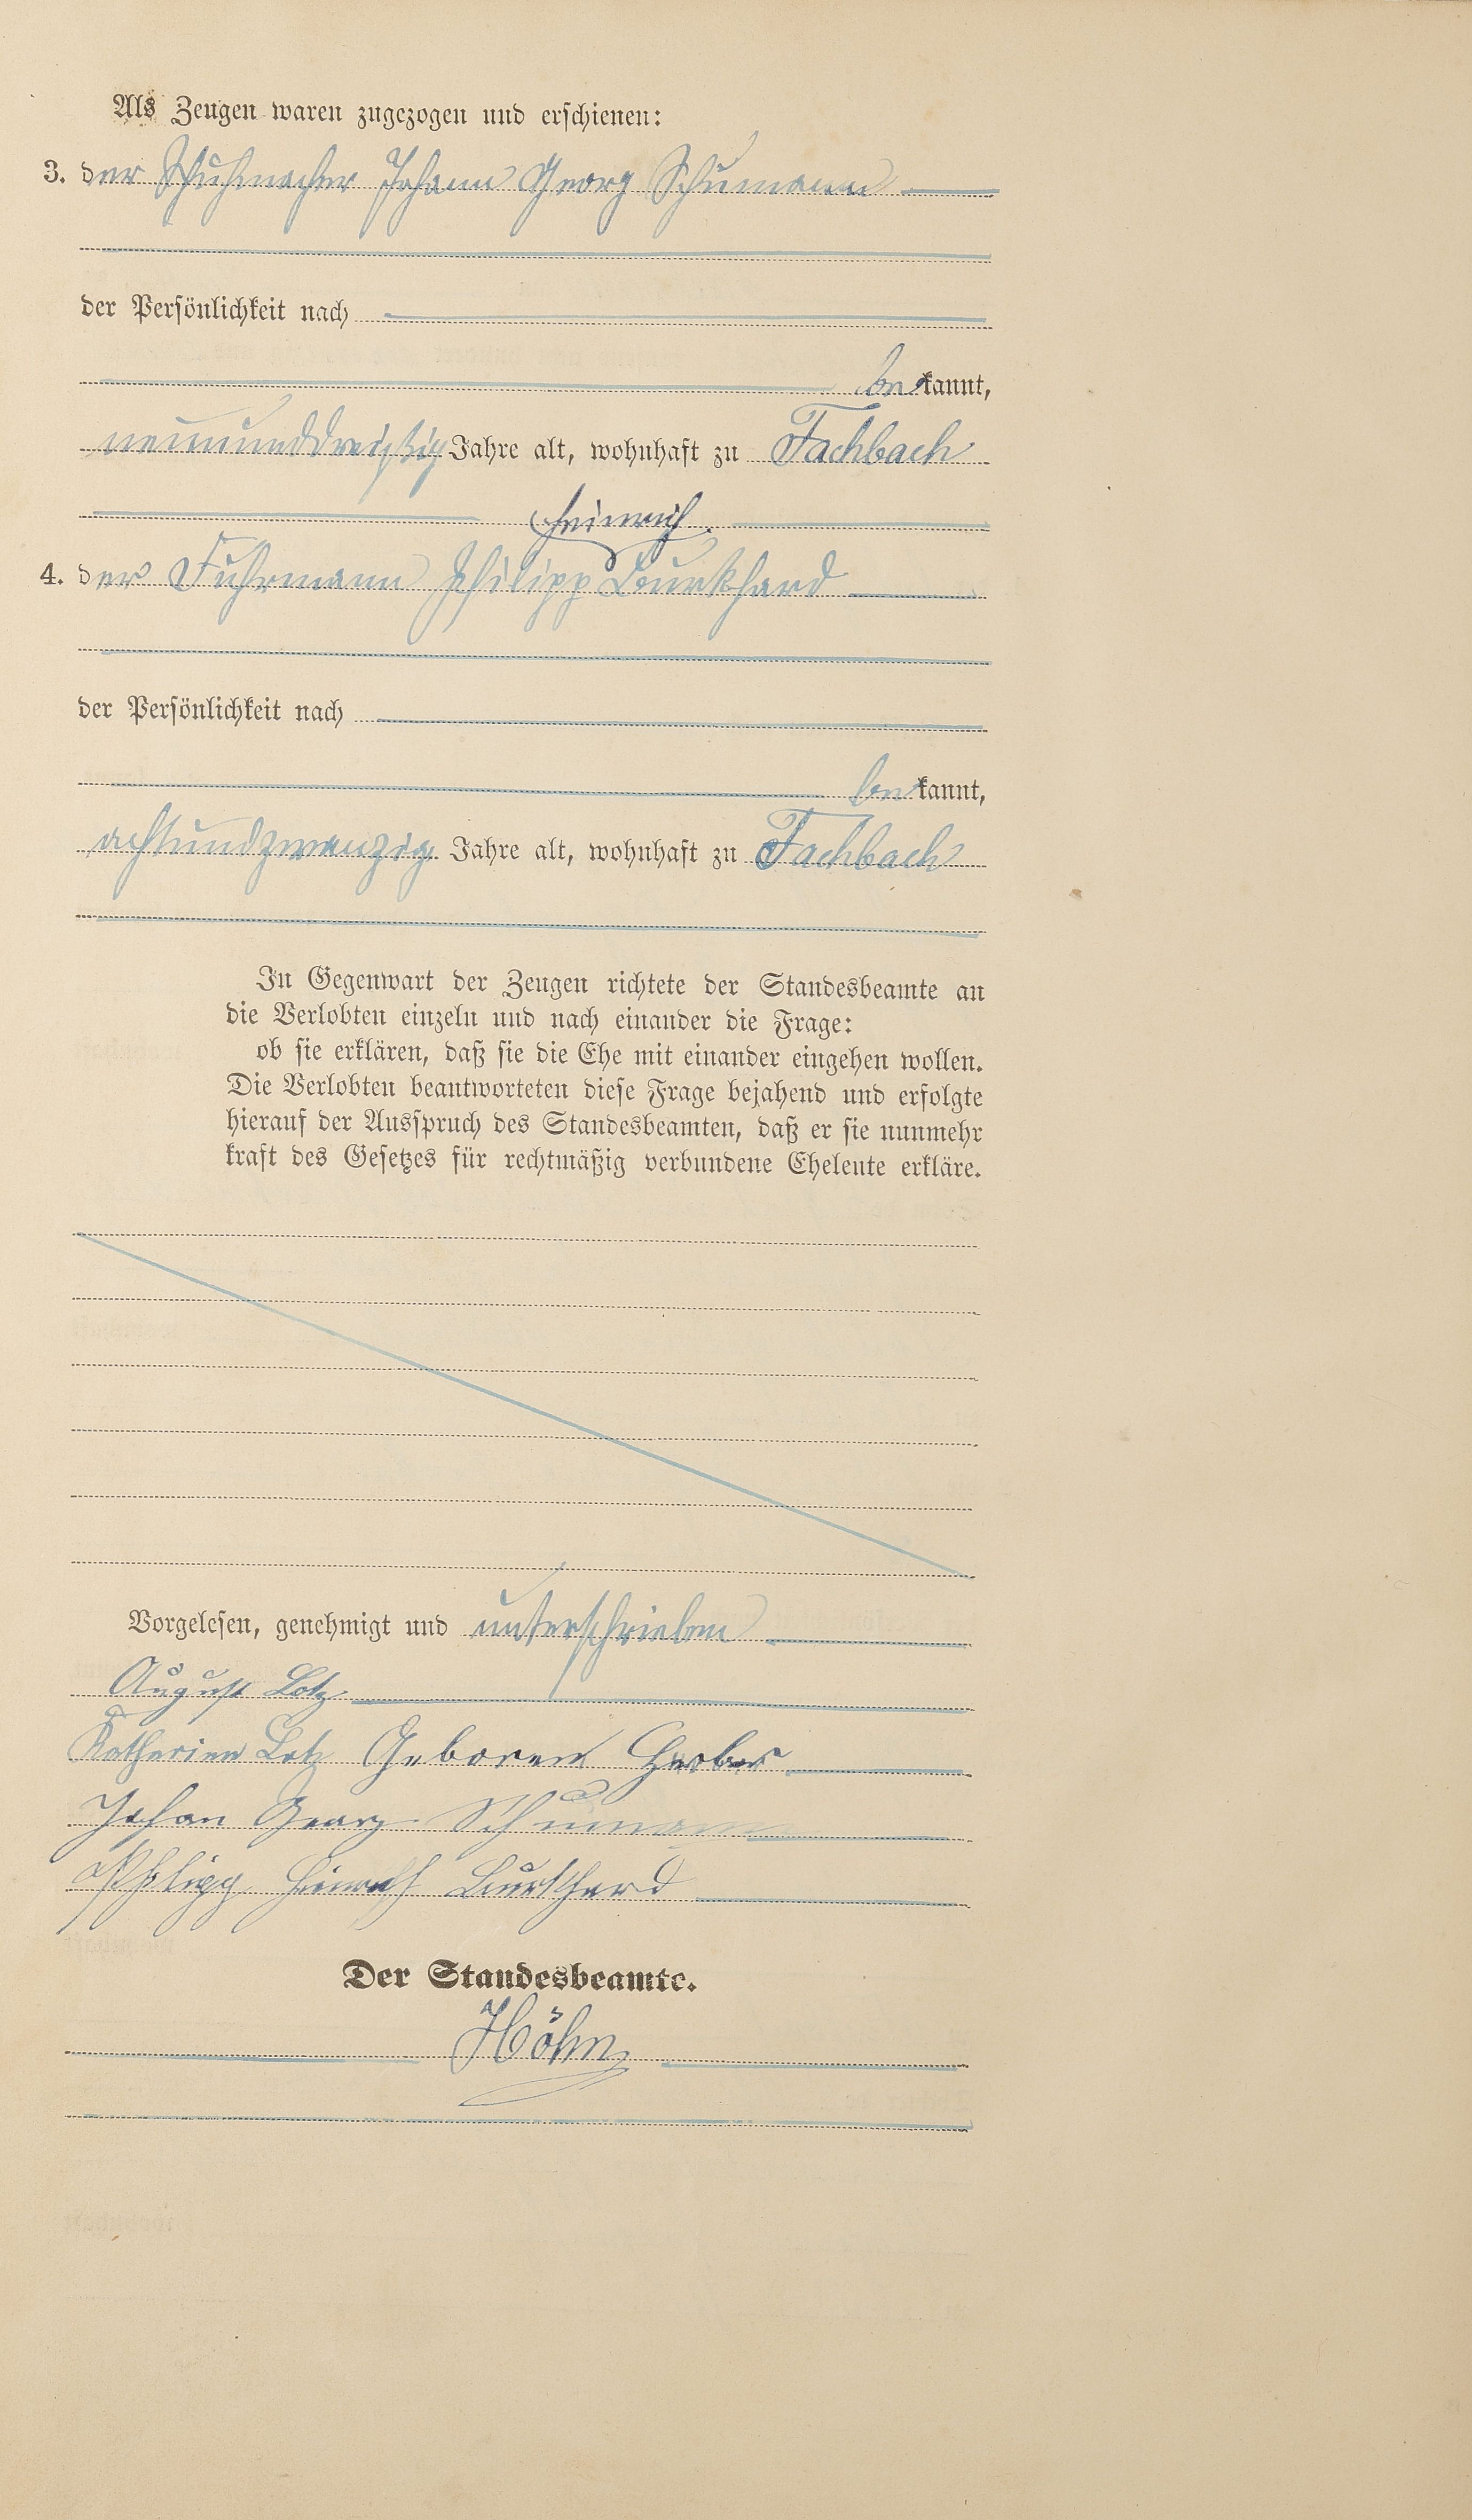 Als Zeugen waren zugezogen und erschienen:
3. der Schuhmacher Johann Georg Schumann
der Persönlichkeit nach
bekannt,
neununddreißig Jahre alt, wohnhaft zu Fachbach
Heinrich
4. der Fuhrmann Philipp Burkhard
der Persönlichkeit nach
bekannt,
achtundzwanzig Jahre alt, wohnhaft zu Fachbach
In Gegenwart der Zeugen richtete der Standesbeamte an
die Verlobten einzeln und nach einander die Frage:
ob sie erklären, daß sie die Ehe mit einander eingehen wollen.
Die Verlobten beantworteten diese Frage bejahend und erfolgte
hierauf der Ausspruch des Standesbeamten, daß er sie nunmehr
kraft des Gesetzes für rechtmäßig verbundene Eheleute erkläre.
Vorgelesen, genehmigt und unterschrieben
August Lotz
Katherina Lotz Geboren
Johan Georg Schumann
Philipp Heinrich Burkhard
Der Standesbeamte.
Höhn